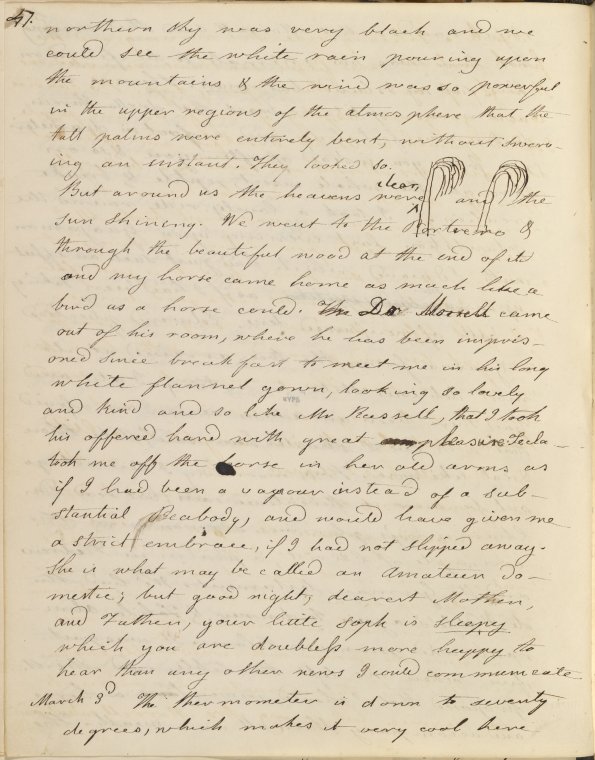 47.
northern sky was very black and we
could see the white rain pouring upon
the mountains & the wind was so powerful
in the upper regions of the atmosphere that the
tall palms were entirely bent, without swerv-
ing an instant. They looked so.
But around us the heavens were clear, and the
sun shining. We went to the Portreiro &
through the beautiful wood at the end of it
and my horse came home as much like a
bird as a horse could. The Dr Morrell came
out of his room, where he has been impris-
oned since breakfast to meet me in his long
white flannel gown, looking so lovely
and kind and so like Mr Russell, that I took
his offered hand with great pleasure Tecla
took me off the horse in her old arms as
if I had been a vapour instead of a sub-
stantial Peabody, and would have given me
a strict embrace, if I had not slipped away.
She is what may be called an Amateur do-
mestic; but good night, dearest Mother,
and Father, your little Soph is sleepy
which you are doubtless more happy to
hear than any other news I could communicate
March 3d The thermometer is down to seventy
degrees, which makes it very cool here
NYPL